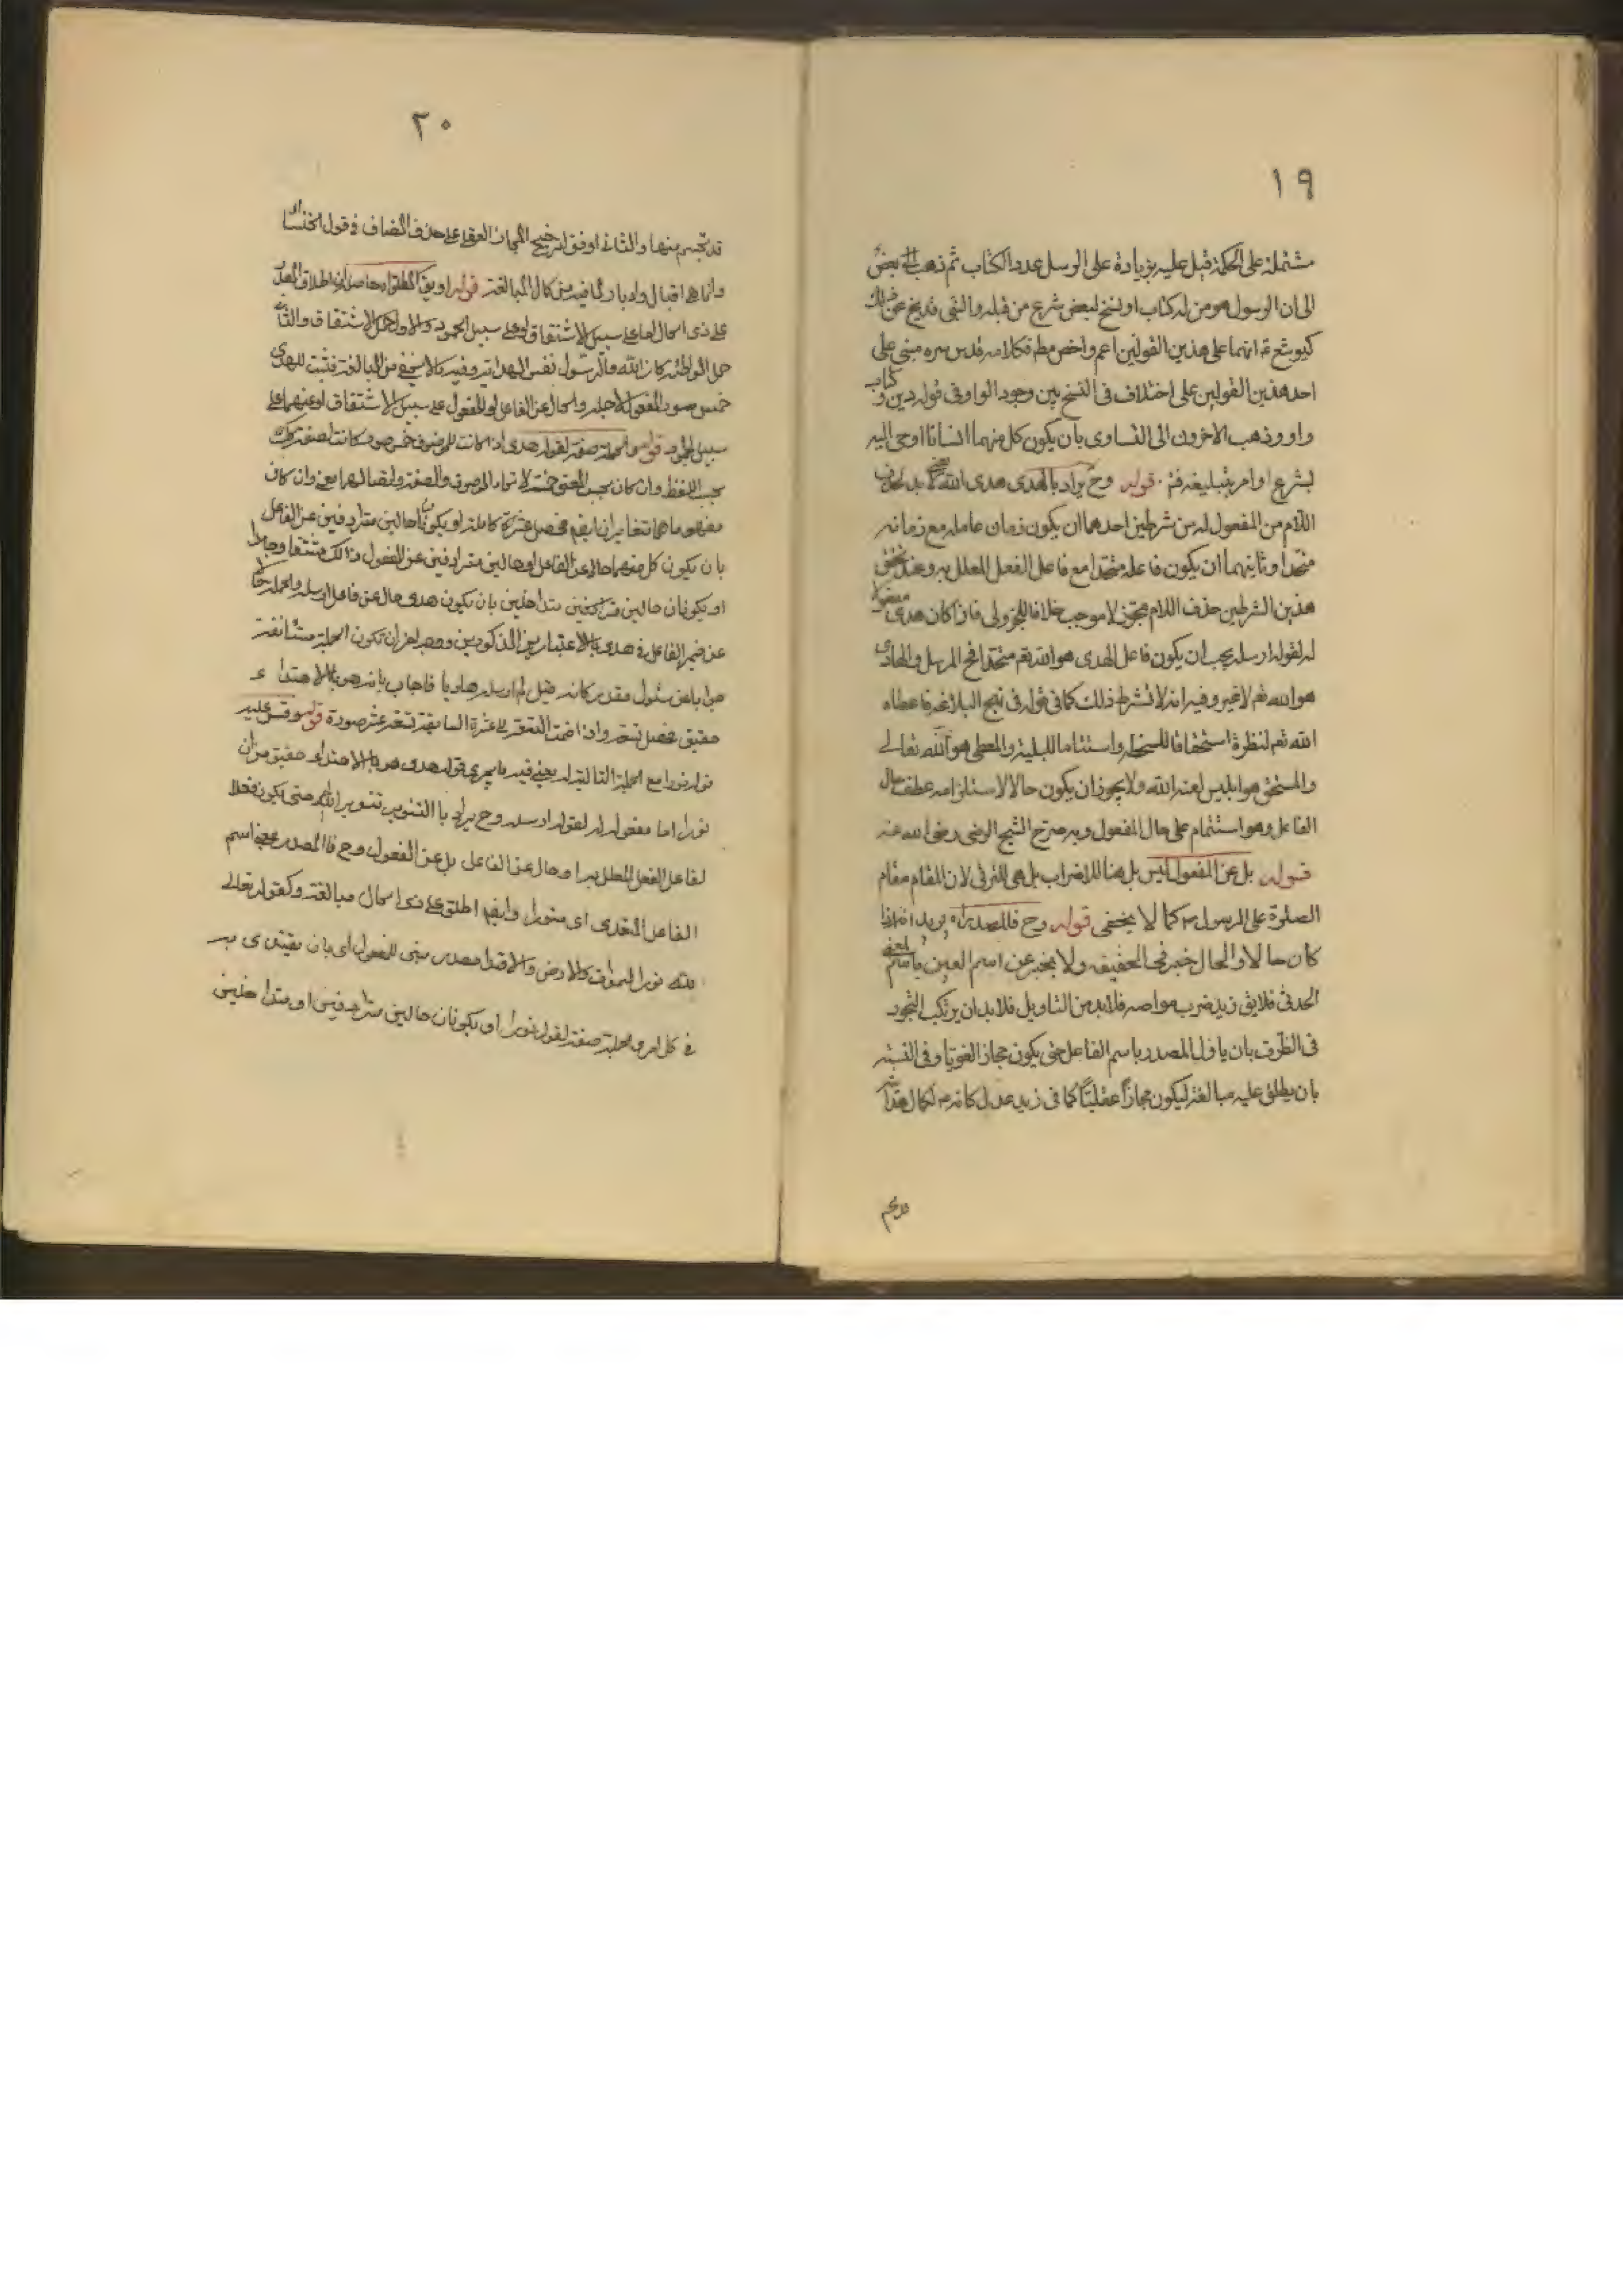 ١٩
مشتملة على الحكمة قيل عليه بزيادة على الرسل عدد الكتاب ثم ذهب بعض
الى ان الرسول هو من له كتاب او نسخ لبعض شرع من قبله والنبى قد يخ عن ذلك
كيوشع ع انهما على هذين القولين اعم واخص مطم فكلامه قدس سره مبنى على
احد هذين القولين على اختلاف فى النسخ بين وجود الواو فى قوله دين و كتاب
واو وذهب الاخرون الى التساوى بان يكون كل منهما انسانا اوحى اليه
بشرع او امر بتبليغه فتم قوله وح يراد بالهدى هدى الله لا بد لحذف
اللام من المفعول له من شرطين احدهما ان يكون زمان عامله مع زمانه
متحدا وثانيهما ان يكون فاعله متحدا مع فاعل الفعل المعلل به وعند تحقق
هذين الشرطين حذف اللام مجوز لا موجب خلافا للجزولى فاذا كان هدى مفعولا
له لقوله ارسله يجب ان يكون فاعل الهدى هو الله تعم متحدا فح المرسل والهادى
هو الله تعم لا غير وفيه انه لا نشترط ذلك كما فى قوله فى نهج البلاغة فاعطاه
الله تعم لنظرة استحقاقا للسخطه واستتماما للبلية والمعطى هو الله تعالى
والمستحق هو ابليس لعنه الله ولا يجوز ان يكون حالا لاستلزامه عطف حال
الفاعل وهو استتمام على حال المفعول وبه صرح الشيخ الرضى رضى الله عنه
قوله بل عن المفعول ليس بل هنا للاضراب بل هى للترقى لان المقام مقام
الصلوة على الرسول ص كما لا يخفى قوله وح فالمصدر اه يريد انه اذا
كان حالا والحال خبر فى الحقيقه ولا يخبر عن اسم العين باسم المعنى
الحدثى فلا يق زيد ضرب مواصه فلا بد من التاويل فلا بد ان يرتكب التجوز
فى الظرف بان ياول المصدر باسم الفاعل حتى يكون مجازا لغويا وفى النسبة
بان يطلق عليه مبالغة ليكون مجازا عقليا كما فى زيد عدل كانه ص لكمال هدايته
٢٠
قد تجسم منها والثانى اوفق لترجيح المجاز العقلى على حذف المضاف فى قول الخنساء
وانما هى اقبال وادبار لما فيه من كمال المبالغة قوله او يق اطلق اه حاصله ان اطلاق الهدى
على ذى الحال اما على سبيل الاشتقاق او على سبيل الجمود والاول حمل الاشتقاق والثانى
حمل المواطئه كان الله والرسول نفس الهداية وفيه ما لا يخفى من المبالغة فثبت للهدى
خمس صور المفعول لاجله والحال عن الفاعل او للمفعول على سبيل الاشتقاق او عنهما على
سبيل الجمود قوله والجملة صفة لقوله هدى اذا كانت للموصوف خمس صور كانت لصفته كك
بحسب اللفظ وان كان بحسب المعنى لاتحاد الموصوف والصفة واتصالهما معنى وان كان
مفهوماهما متغايران ايضم فحصل عشرة كاملة او يكونا حالين مترادفين عن الفاعل
بان يكون كل منهما حالا عن الفاعل او حالين مترادفين عن المفعول كذلك
او يكونان حالين متداخلين بان يكون هدى حال عن فاعل ارسله والجملة
عن ضمير الفاعل فى هدى بالاعتبارين المذكورين ووجه اخر ان تكون الجملة مستانفة
جوابا عن سئول مقدر كانه قيل لم ارسله هاديا فاجاب بانه هو بالاهتداء
حقيق فحصل تسعة واذا ضمت التسعة الى عشرة السابقة تسعة عشر صورة قوله وقس عليه
قوله نورا مع الجملة التالية له يعنى فيه ما يجرى قوله هدى هو بالاهتداء حقيق من ان
نورا اما مفعول له لقوله ارسله وح يراد بالتنوير تنوير الله حتى يكون فعلا
لفاعل الفعل المعلل به او حال عن الفاعل بل عن المفعول وح فالمصدر بمعنى اسم
الفاعل المتعدى اى منورا وايضم اطلق على ذى الحال مبالغة وكقوله تعالى
الله نور السموات والارض والاقتدا مصدر مبنى للمفعول اى بان يقتدى به
فى كل امر والجملة صفة لقوله نورا او يكونان حالين مترادفين او متداخلين